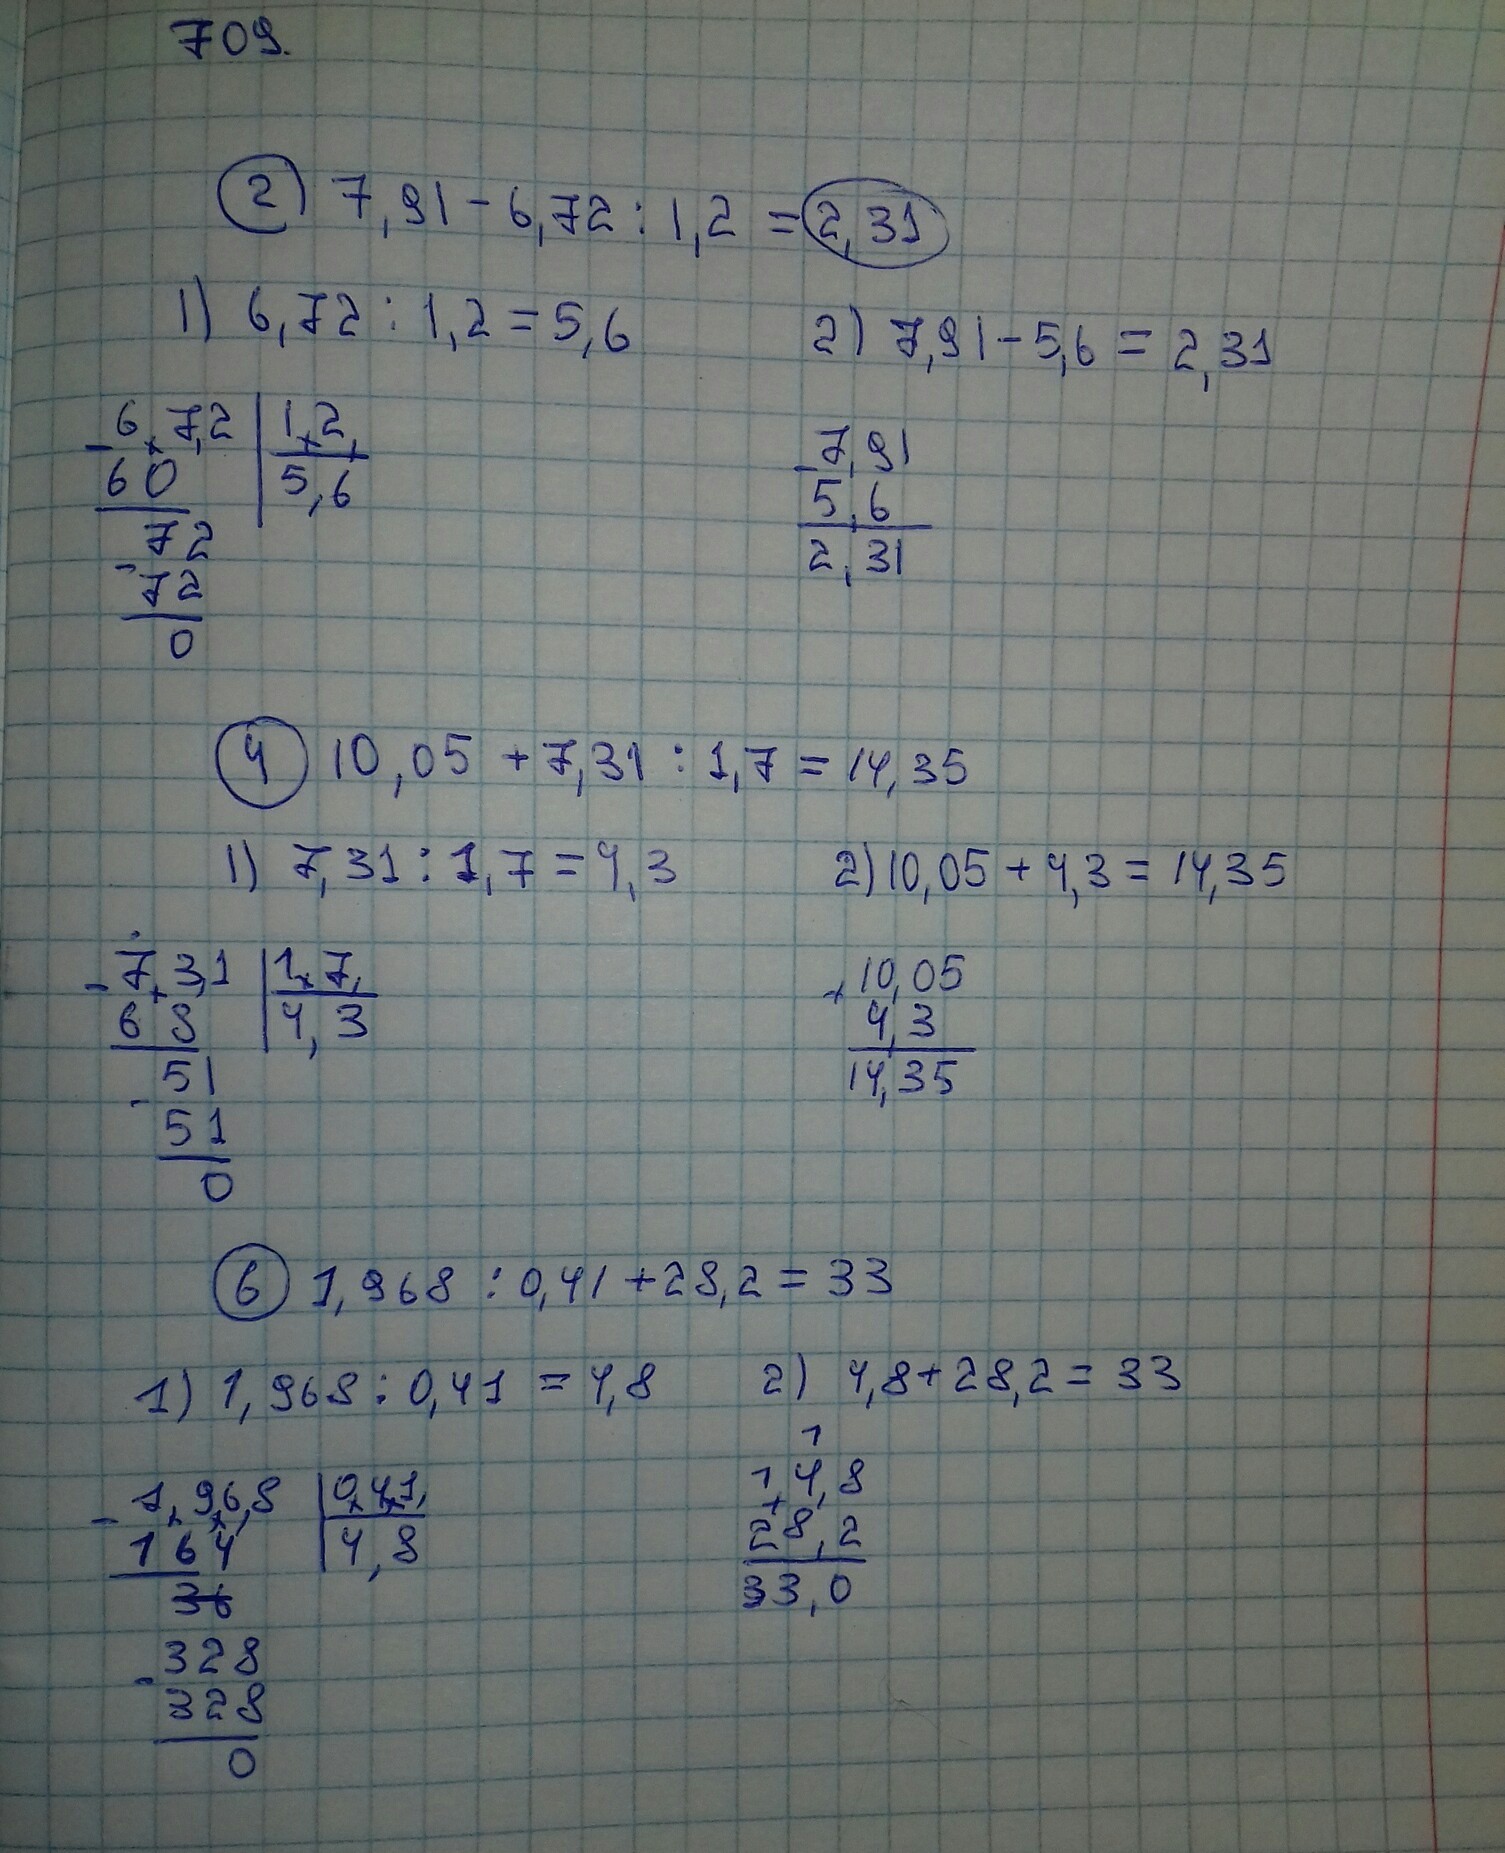 709.
2) 7,91 - 6,72 : 1,2 = 2,31
1) 6,72 : 1,2 = 5,6
2) 7,91 - 5,6 = 2,31
- 6,7,2 | 1,2,
60 | 5,6
- 72
72
0
- 7,91
5,6
2,31
4 10,05 + 7,31 : 1,7 = 14,35
1) 7,31 : 1,7 = 4,3
2) 10,05 + 4,3 = 14,35
- 7,3,1 | 1,7,
68 | 4,3
- 51
51
0
+ 10,05
4,3
14,35
6 1,968 : 0,41 + 28,2 = 33
1) 1,968 : 0,41 = 4,8
2) 4,8 + 28,2 = 33
- 1,96,8 | 0,41,
164 | 4,8
36
- 328
328
0
1
1 4,8
+
28,2
33,0